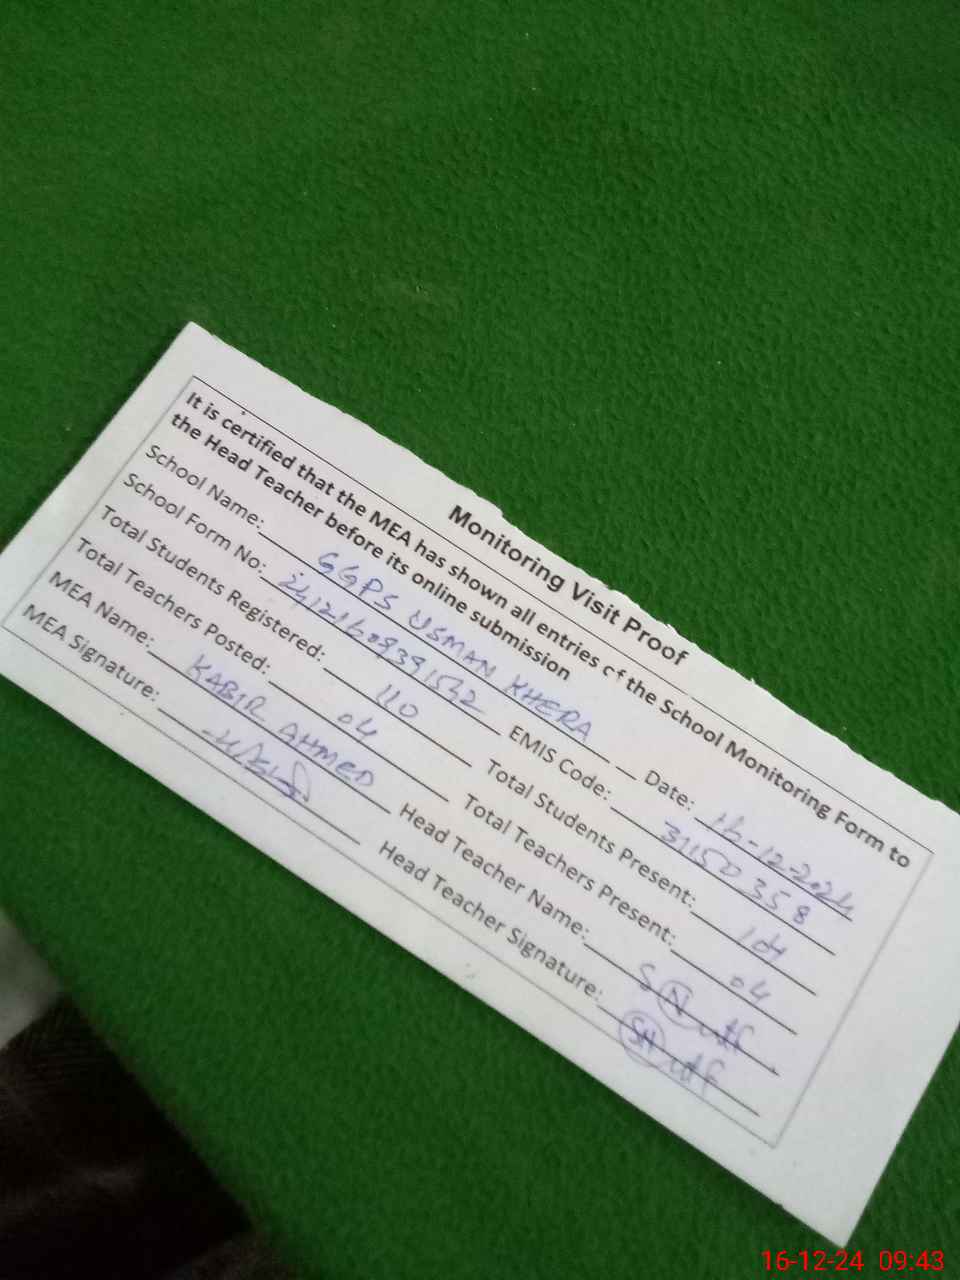 Monitoring Visit Proof
It is certified that the MEA has shown all entries of the School Monitoring Form to
the Head Teacher before its online submission
School Name: GGPS USMAN KHERA Date: 16-12-2024
School Form No: EMIS Code: 31150358
Total Students Registered: 110 Total Students Present: 104
Total Teachers Posted: 04 Total Teachers Present: 04
MEA Name: KABIR AHMED Head Teacher Name:
MEA Signature: Head Teacher Signature:
16-12-24 09:43